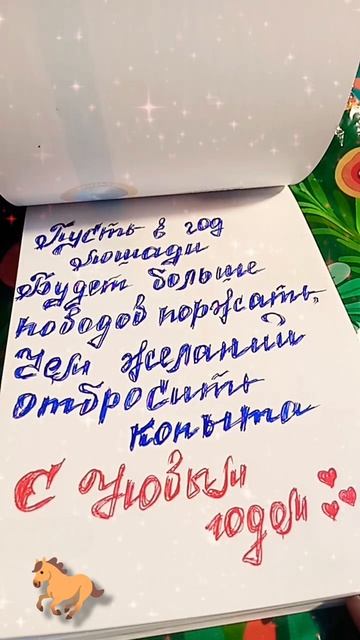 Пусть в год
лошади
Будет больше
поводов поржать,
Чем желаний
отбросить
копыта
С Новым
годом